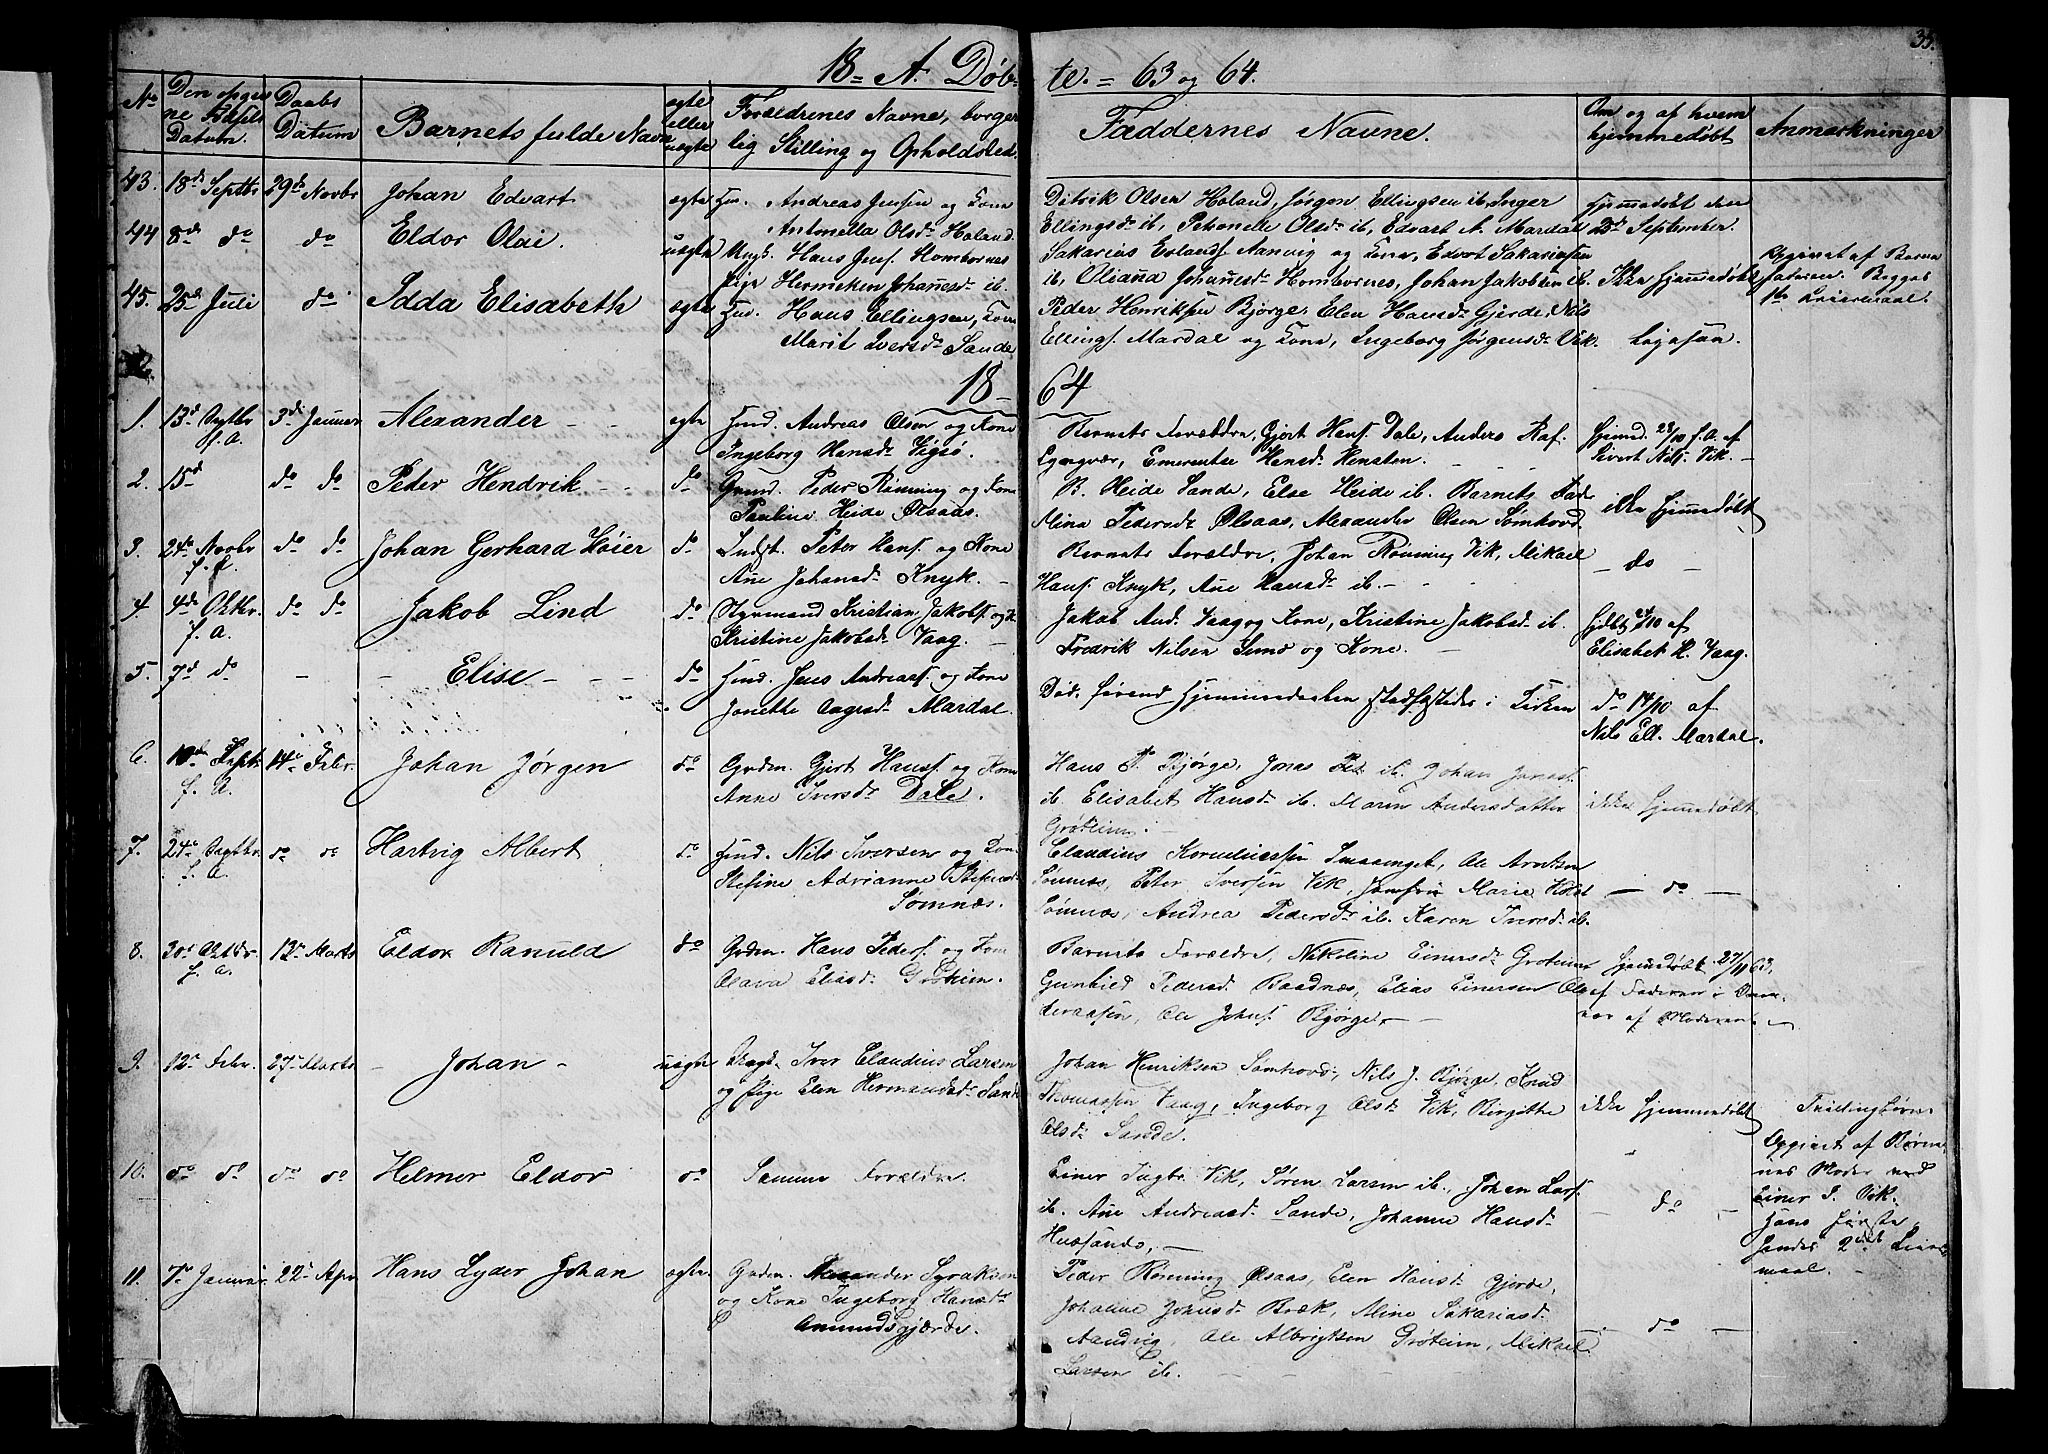 35.
18 = A. Døb= te. = 63 og 64.
No
Den opgiv
ne Fødsels
Datum.
Daabs
Datum
Barnets fulde Navn
egte
eller
uegte
Forældrenes Navne, borger
lig Stilling og Opholdsted.
Faddernes Navne.
Om og af hvem
hjemmedøbt
Anmærkninger
43. 18de Septbr 29de Novbr Johan Edvart egte Hm. Andreas Jensen og Kone
Antonella Olsdr Holand.
Ditrik Olsen Holand, Jørgen Ellingsen ib, Inger
Ellingsdr ib, Petronelle Olsdr ib, Edvart A. Mardal
Hjemmedøbt den
September.
44 8de do do Eldor Olai. uegte Ungk. Hans Jens. Hombornes
Pige Hermeken Johanesdr ib.
Sakarias Aanvig og Kone, Edvort Sakariasen
ib, Oliana Johanesdr Hombornes, Johan Jakobsen ib.
Ikke hjemmedøbt
Opgivet af Barne
faderen. Begges
1ste Leiermaal.
45. 25de Juli do Idda Elisabeth egte Hm. Hans Ellingsen, Kone
Marit Iversdr Sande
Peder Henriksen Bjørge, Elen Hansdr Gjerde, Nils
Ellings. Mardal og Kone, Ingeborg Jørgensdr Vik.
Ligesaa.
18 64
1. 13d f.A. 3di Januar Alexander - - egte Huud. Andreas Olsen og Kone
Ingeborg Hansdr Vigsø.
Barnets Forældre, Gjert Hans. Dale, Anders Raf.
Lyngvær, Emerentse Hansdr Hensten. - - -
Hjemd. 23/10 f.A. af
Sivert Nils. Vik. -
2. 15d do do Peter Hendrik - - do Grund. Peder Rønning og Kone
Pauline Heide Ølsaas.
B. Heide Sande, Else Heide ib. Barnets Fad.
Mina Pedersdr Ølsaas, Alexander Olsen Sømhovd.
ikke hjemmedøbt
3. 24de Novbr f.A. do do Johan Gerhard Høier do Indst. Peter Hans. og Kone
Ane Johansdr Knyk. -
Barnets Forældre, Johan Rønning Vik, Mikael
Hans. Knyk, Ane Hansdr ib. -
- do -
4. 4de Oktbr. f.A. do do Jakob Lind do Styrmand Kristian Jakobs. og K.
Kristine Jakobsdr Vaag. -
Jakob And. Vaag og Kone, Kristine Jakobsdr ib.
Fredrik Nilsen Sund og Kone. -
Hjdbt /10 af
Elisabet K. Vaag.
5. 7d do - - Elise - - - do Huud. Jens Andreass. og Kone
Jonette Aagesdr Mardal.
Død. førend Hjemmedaaben stadfæstedes i Kirken
do 14/10 af
Nils Ell. Mardal.
6. 10de Septr f.A. 14de Febr. Johan Jørgen do Grdm. Gjert Hans. og Kone
Anne Iversdr Dale.
Hans P. Bjørge, Jonas Ped. ib. Johan Jonas.
ib. Elisabet Hansdr ib. Maren Andersdatter
Grøteim. -
ikke hjemmedøbt
7. 24de f.A. do do Hartvig Albert do Huud. Nils Iversen og Kone
Stefine Adrianne Stefensdr
Sømnæs.
Claudius Korneliussen Smaavaget, Ole Arntsen
Sømnæs, Peter Iversen Vik, Jomfru Marie Holst
Sømnæs, Andrea Pedersdr ib. Karen Iversdr ib.
- do -
8. 30te Oktbr f.A. 13de Marts Eldor Ranuld do Grdm. Hans Peders. og Kone
Olava Eliasdr Grøteim.
Barnets Forældre, Nikoline Einersdr Grøteim
Gunhild Pedersd Baadnæs, Elias Einersen Ols
deraasen, Ole Johns. Bjørge. -
Hjemmedøbt 27/11 63.
af Faderen i
vær af Moderen. -
9. 12te Febr. 27de Marts - Johan - uegte Ungk. Iver Claudius Larsen
og Pige Elen Hermansdr Sande
Johan Henriksen Sømhovd, Nils J. Bjørge, Knud
Thomassen Vaag, Ingeborg Olsdr Vik, Birgitha
Olsdr Sande.
ikke hjemmedøbt
Tvillingbørn.
Opgivet af Børne
nes Moder ved
Einer I. Vik.
Hans første,
hendes 2det Leier
maal. -
10. do do do do Helmer Eldor do Samme Forældre.
Einer Ingbr. Vik, Søren Larsen ib., Johan Lars.
ib. Ane Andreasdr Sande, Johanna Hansdr
Hussande, -
- do -
11. 7de Januar 22de Apr. Hans Lyder Johan egte. Grdm. Alexander Syraksen
og Kone Ingeborg Hansdr
Amundsgjærde.
Peder Rønning Ølsaas, Elen Hansdr Gjerde,
Johaline Johnsdr Bræk, Mine Sakariasdr
Aandvig, Ole Albrigtsen Grøteim, Mikael
Larsen ib. - - -
- do -